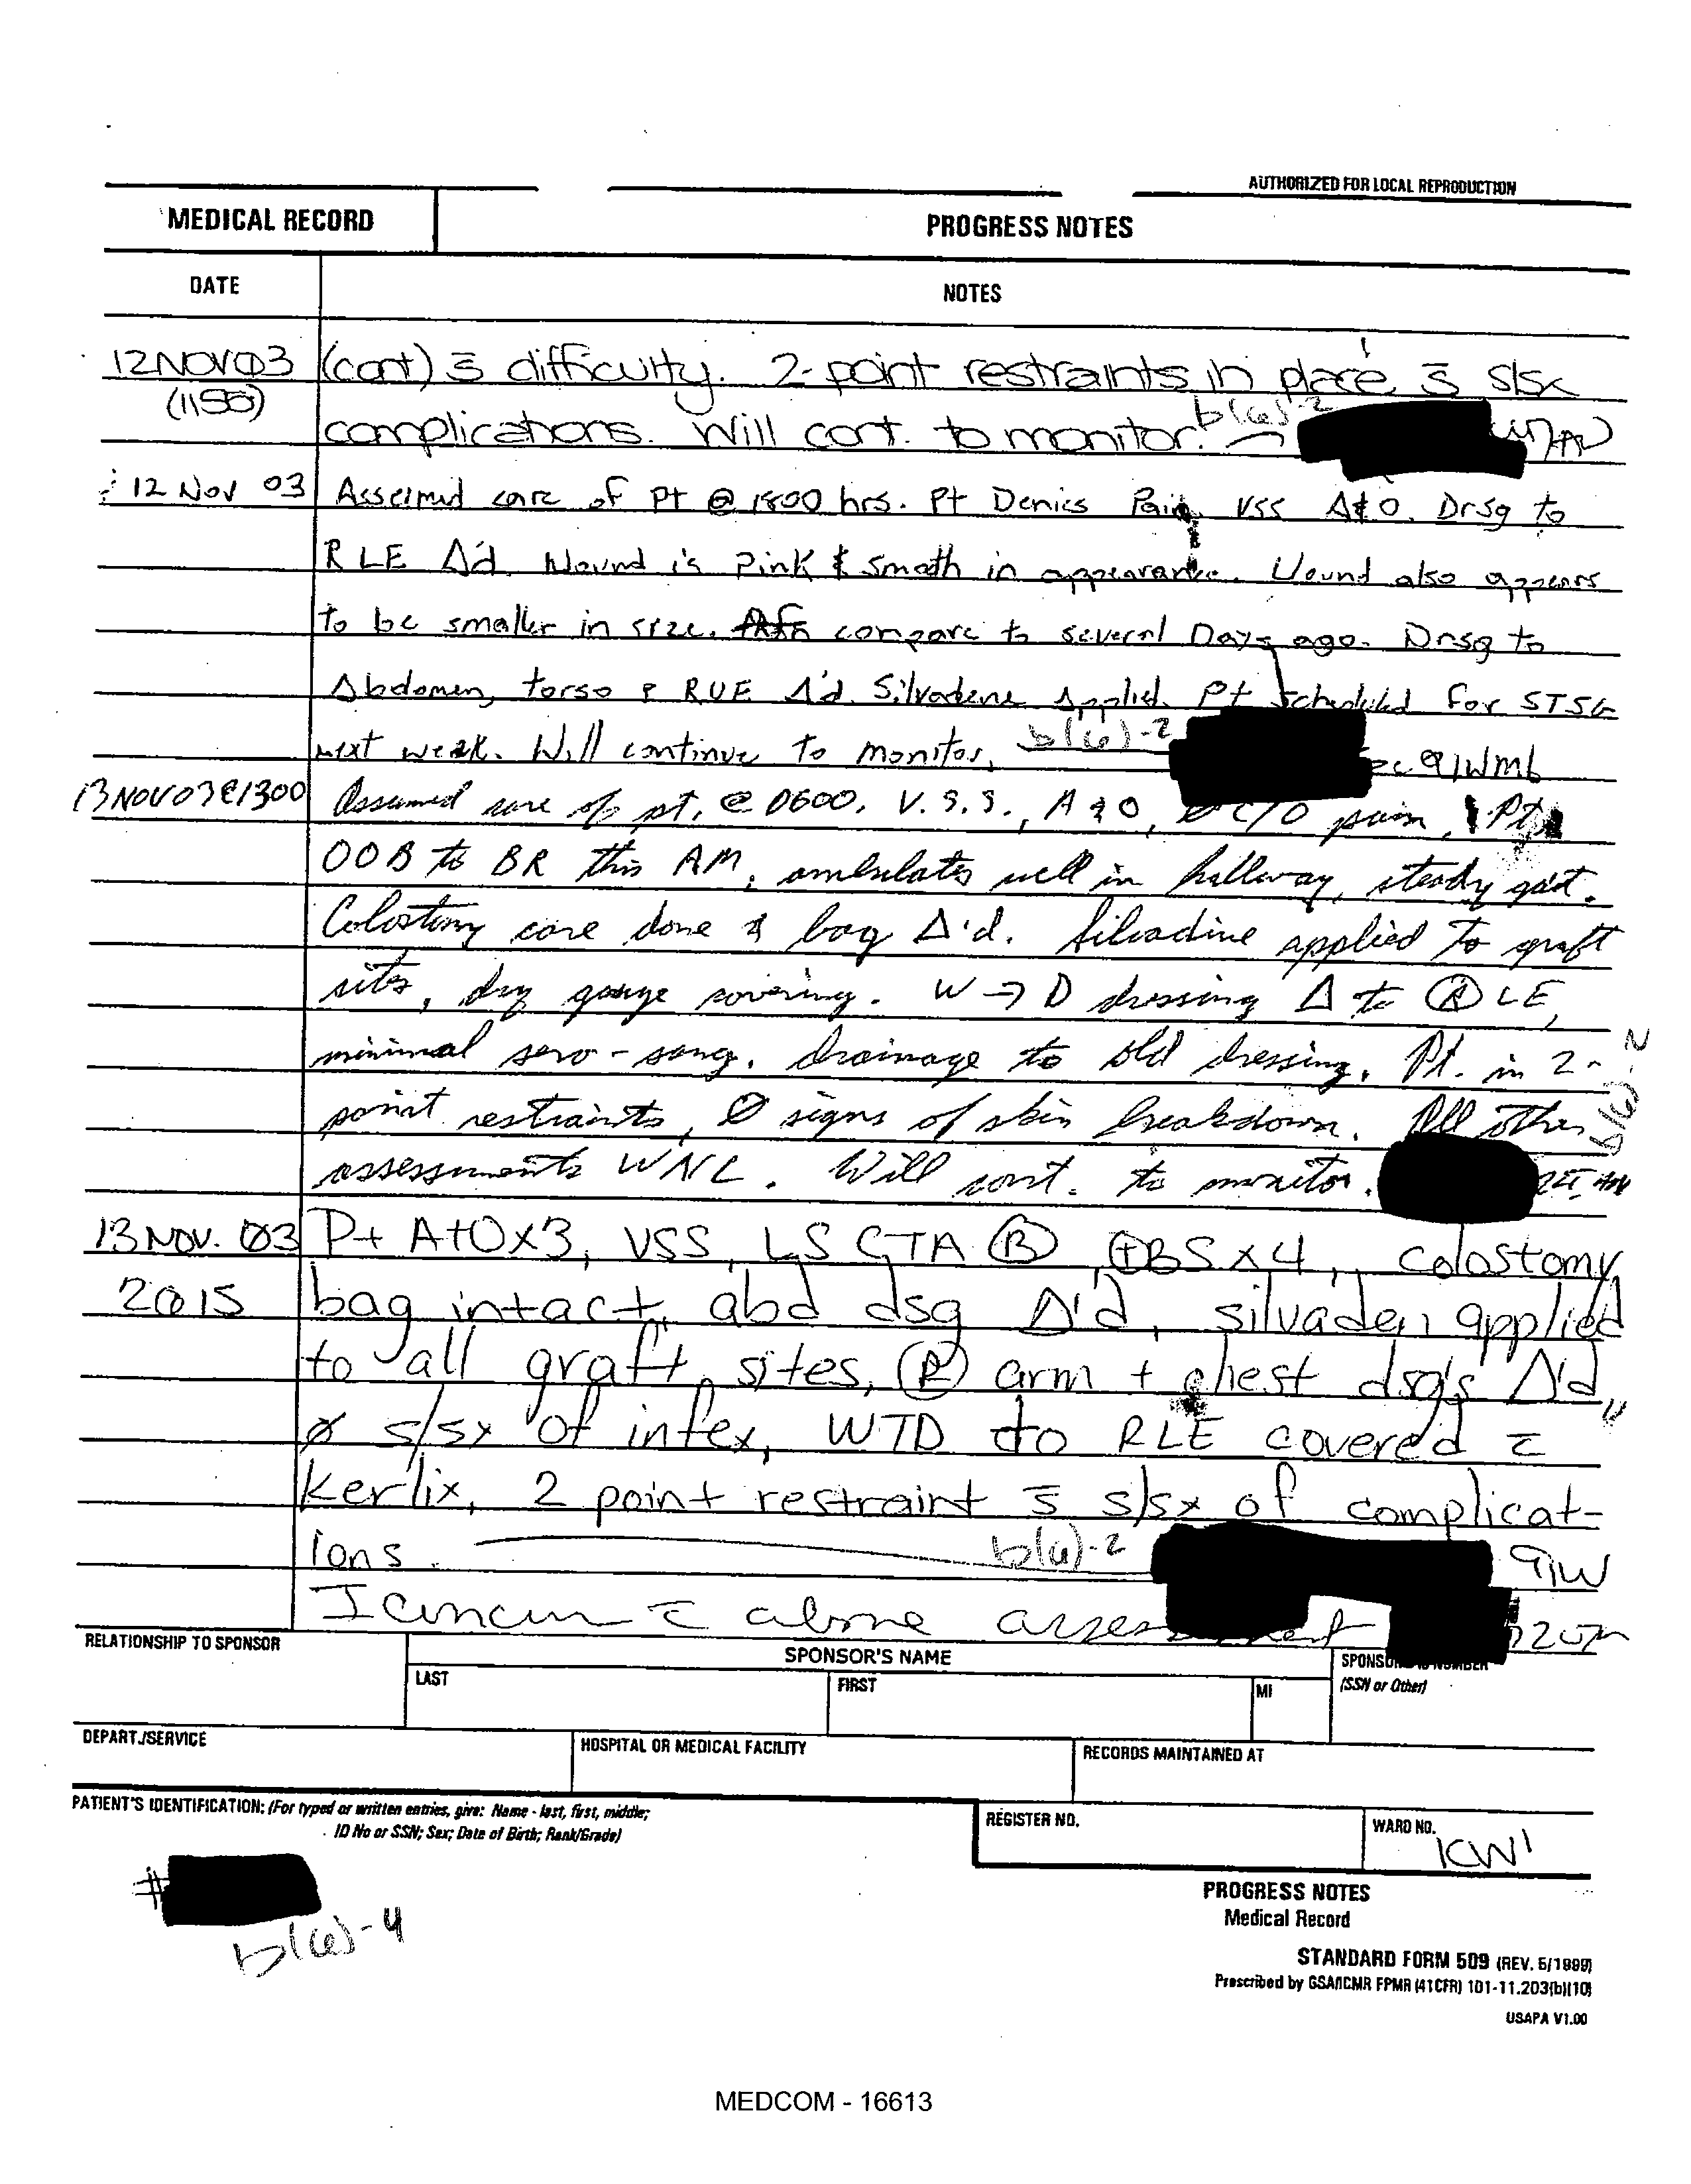 AUTHORIZED FOR LOCAL REPRODUCTION
MEDICAL RECORD
PROGRESS NOTES
DATE
NOTES
12NOV03 (cont) s̄ difficulty. 2-point restraints in place s̄ s/sx
(1155) complications. Will cont. to monitor. b(6)-2
12 Nov 03 Assumed care of Pt @ 1800 hrs. Pt Denies Pain, VSS A&O. Drsg to
RLE Δ'd Wound is Pink & smooth in appearance. Wound also appears
to be smaller in size. compare to several Days ago. Drsg to
Abdomen, torso & RUE Δ'd. Silvadene Applied. Pt scheduled for STSG
next week. Will continue to monitor. b(6)-2 91WM6
13NOV03@1300 Assumed care of pt. @ 0600. V.S.S., A&O, Ø C/O pain, Pt
OOB to BR this AM, ambulates well in hallway, steady gait.
Colostomy care done & bag Δ'd. Silvadine applied to graft
sites, dry gauze covering. W→D dressing Δ to Ⓡ LE,
minimal sero-sang. drainage to old dressing. Pt. in 2-
point restraints, Ø signs of skin breakdown. All other
assessments WNL. Will cont. to monitor. b(6)-2
13 NOV. 03 Pt A+Ox3, VSS, LS CTA Ⓑ, ⊕BS x 4, colostomy
2015 bag intact, abd dsg Δ'd, silvaden applied
to all graft sites, Ⓡ arm + chest dsg's Δ'd,
ø s/sx of infex, WTD to RLE covered c̄
Kerlix, 2 point restraint s̄ s/sx of complicat-
ions. b(6)-2 91W
I concur c̄ above assessment
RELATIONSHIP TO SPONSOR
SPONSOR'S NAME
LAST
FIRST
MI
(SSN or Other)
DEPART./SERVICE
HOSPITAL OR MEDICAL FACILITY
RECORDS MAINTAINED AT
PATIENT'S IDENTIFICATION: (For typed or written entries, give: Name - last, first, middle;
ID No or SSN; Sex; Date of Birth; Rank/Grade)
REGISTER NO.
WARD NO.
ICW1
#
b(6)-4
PROGRESS NOTES
Medical Record
STANDARD FORM 509 (REV. 5/1999)
Prescribed by GSA/ICMR FPMR (41CFR) 101-11.203(b)(10)
USAPA V1.00
MEDCOM - 16613